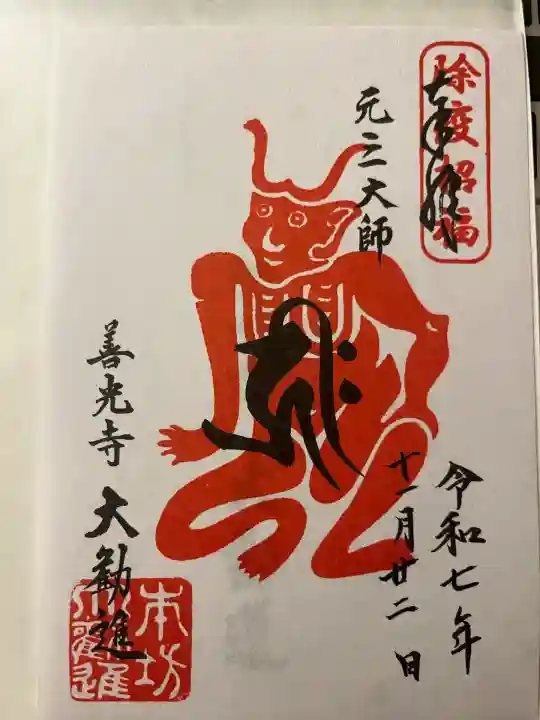 除疫招福
奉拝
元三大師
令和七年
十一月廿二日
善光寺 大勧進
本坊
大勧進